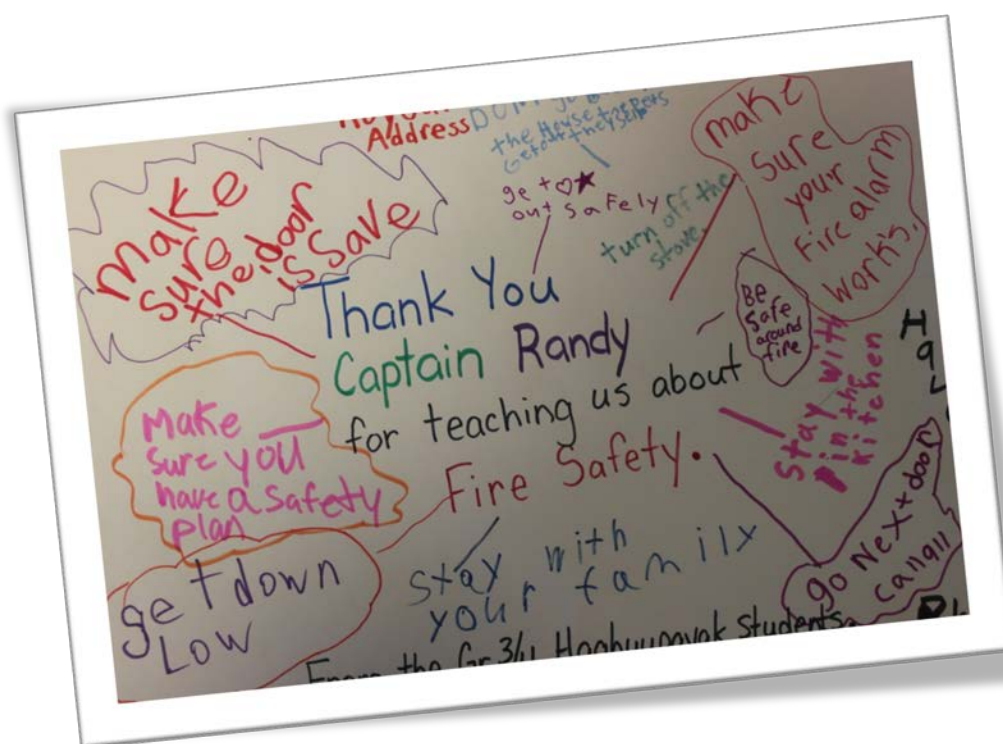 Address
the House
get ♡★
out safely
turn off the
stove.
make
Sure
your
Fire alarm
work's.
make
sure
the door
is save
Thank You
Captain Randy
for teaching us about
Fire Safety.
Be
Safe
around
fire
Stay with
in the
kitchen
Make
sure you
have a safety
plan
get down
Low
stay with
your family
go Next door
call 911
From the Gr 3/4 students